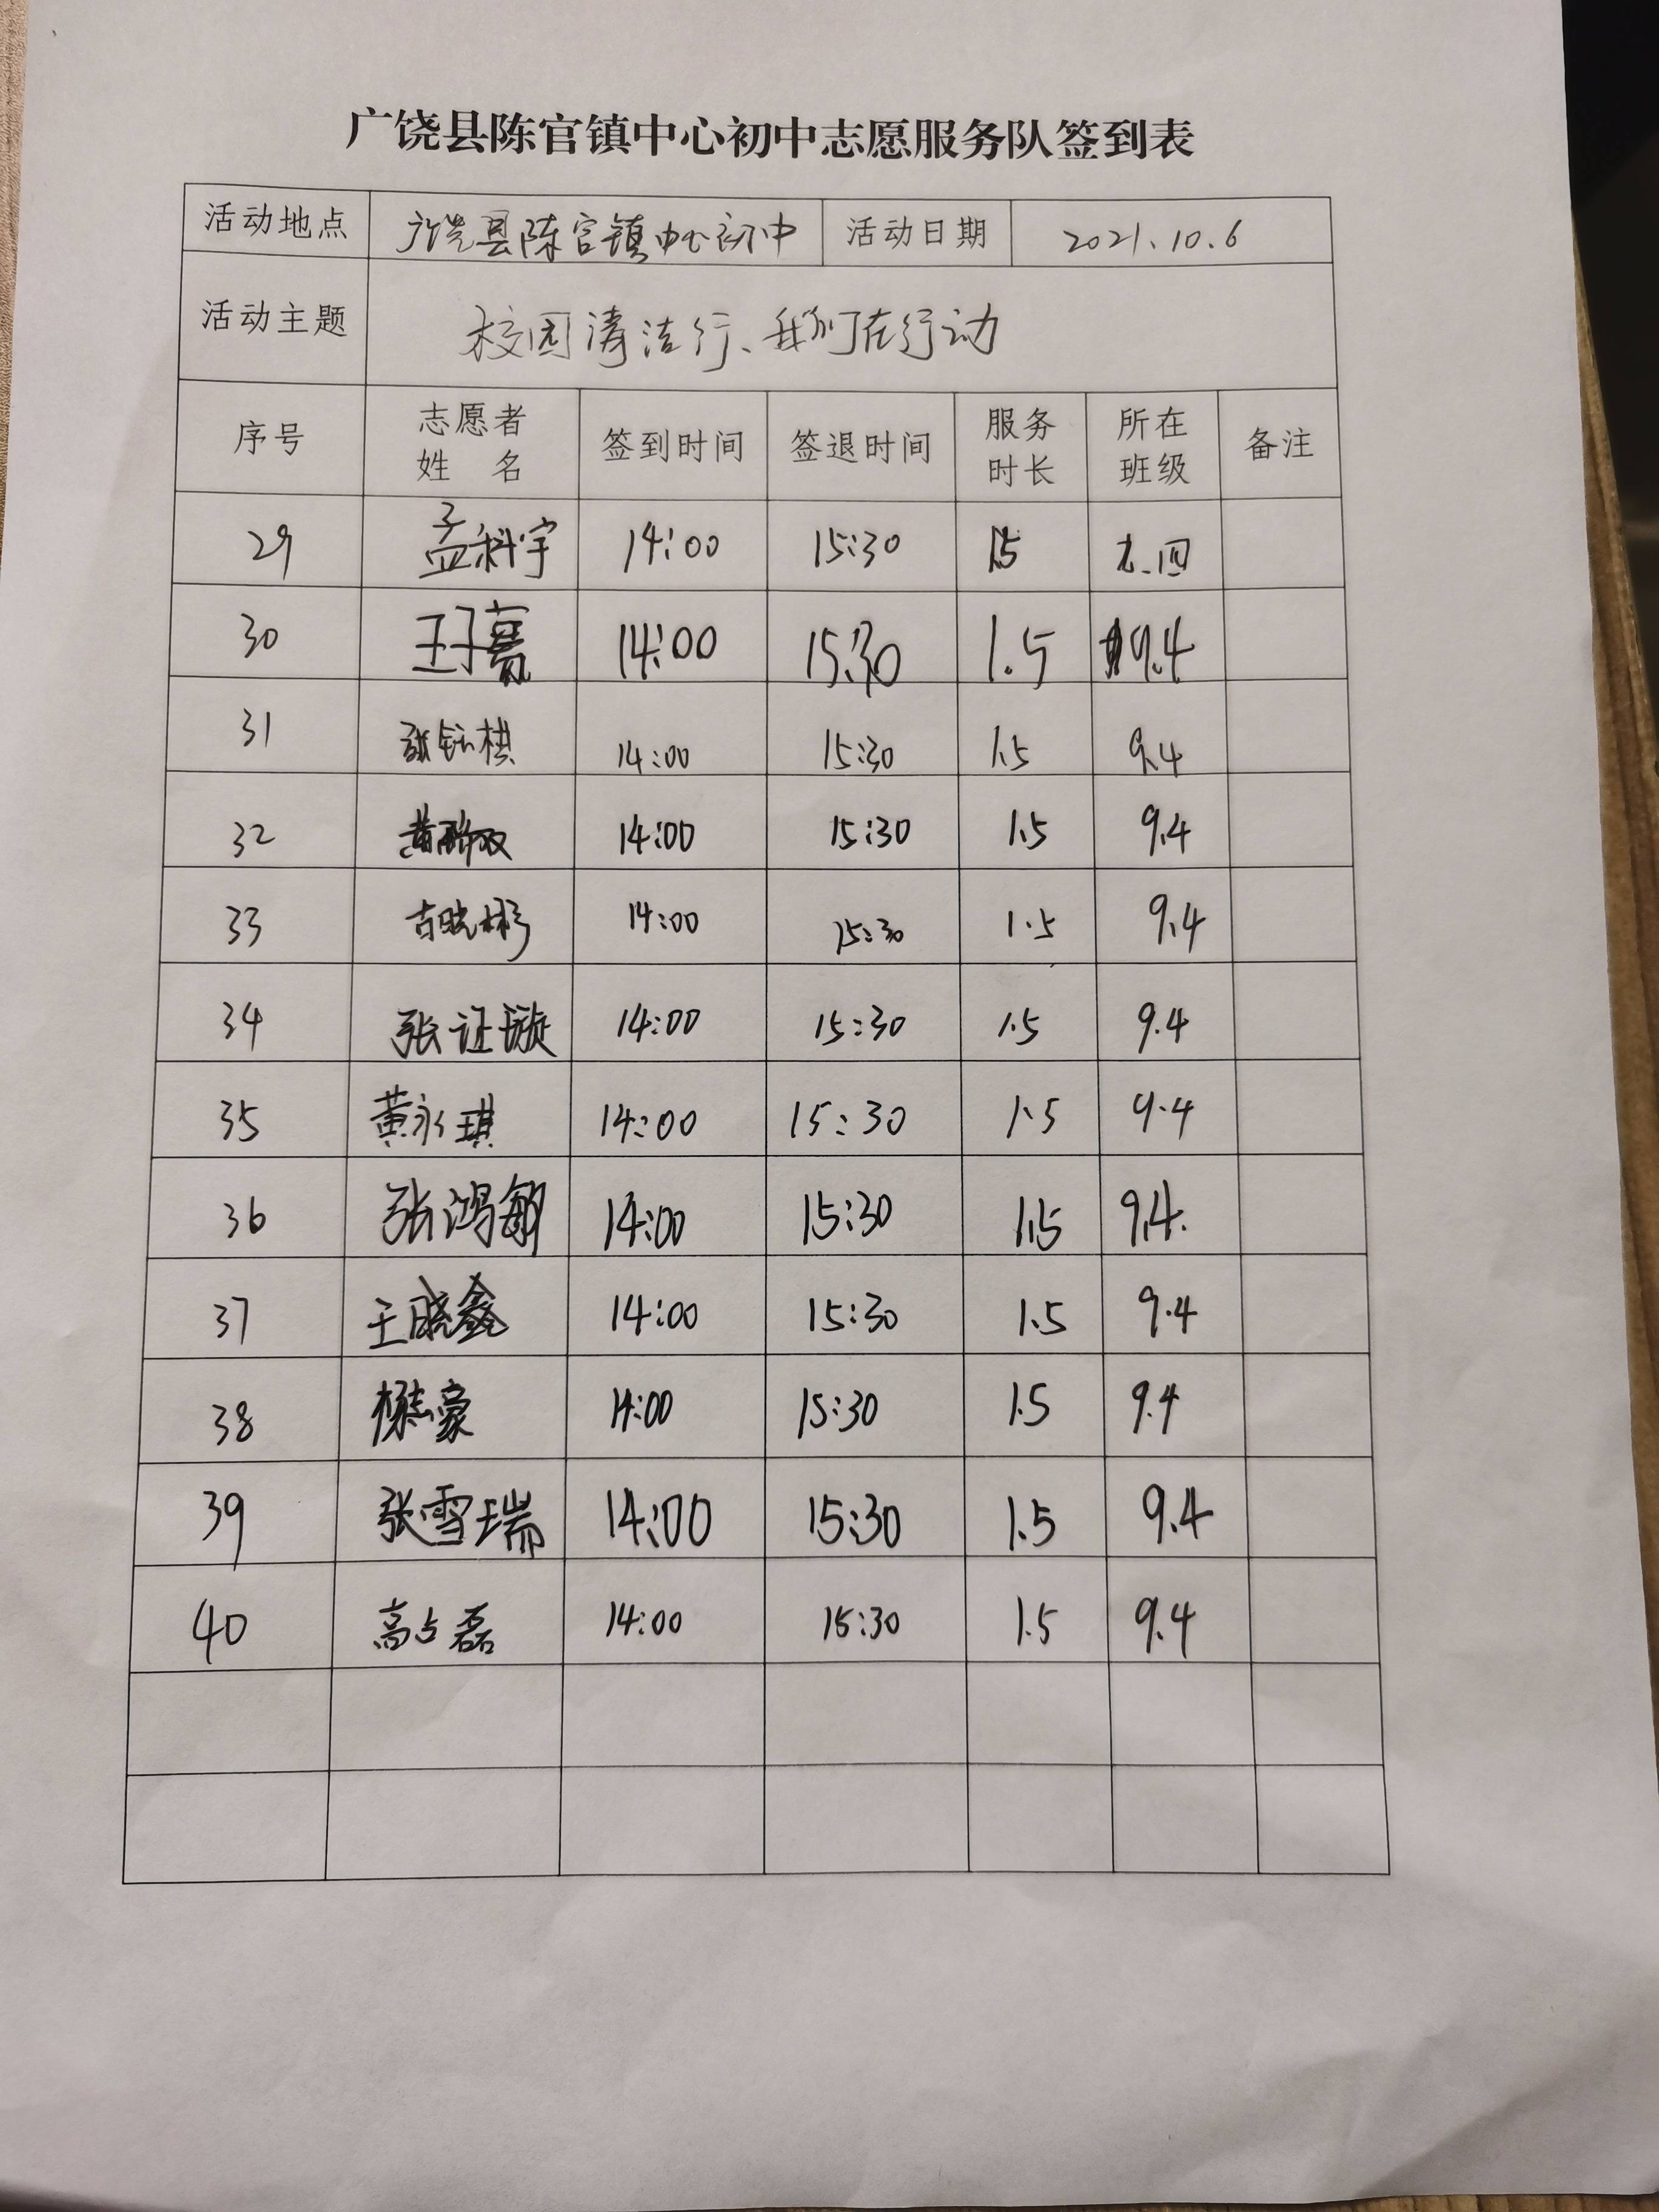 广饶县陈官镇中心初中志愿服务队签到表
活动地点 广饶县陈官镇中心初中 活动日期 2021.10.6
活动主题 校园清洁行、我们在行动
序号 志愿者姓名 签到时间 签退时间 服务时长 所在班级 备注
29 孟科宇 14:00 15:30 1.5 九.四
30 王子 14:00 15:30 1.5 9.4
31 张钰棋 14:00 15:30 1.5 9.4
32 黄 14:00 15:30 1.5 9.4
33 古晓彬 14:00 15:30 1.5 9.4
34 张证璇 14:00 15:30 1.5 9.4
35 黄永琪 14:00 15:30 1.5 9.4
36 张鸿敏 14:00 15:30 1.5 9.4.
37 王晓鑫 14:00 15:30 1.5 9.4
38 志豪 14:00 15:30 1.5 9.4
39 张雪瑞 14:00 15:30 1.5 9.4
40 高占磊 14:00 15:30 1.5 9.4